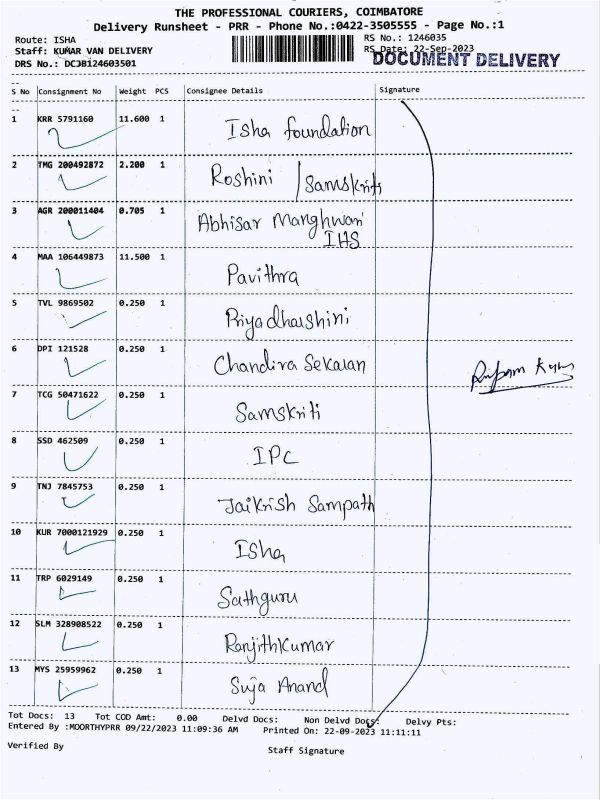 THE PROFESSIONAL COURIERS, COIMBATORE
Delivery Runsheet - PRR - Phone No.:0422-3505555 - Page No.:1
Route: ISHA
RS No.: 1246035
Staff: KUMAR VAN DELIVERY
RS Date: 22-Sep-2023
DOCUMENT DELIVERY
DRS No.: DCJB124603501
S No Consignment No Weight PCS Consignee Details Signature
1 KRR 5791160 11.600 1 Isha foundation
2 TMG 200492872 2.200 1 Roshini / Samskriti
3 AGR 200011404 0.705 1 Abhisar Manghwani
IHS
4 MAA 106449873 11.500 1 Pavithra
5 TVL 9869502 0.250 1 Priyadharshini
6 DPI 121528 0.250 1 Chandira Sekaran
7 TCG 50471622 0.250 1 Samskriti
8 SSD 462509 0.250 1 IPC
9 TNJ 7845753 0.250 1 Jaikrish Sampath
10 KUR 7000121929 0.250 1 Isha
11 TRP 6029149 0.250 1 Sathguru
12 SLM 328908522 0.250 1 Ranjithkumar
13 MYS 25959962 0.250 1 Suja Anand
Tot Docs: 13 Tot COD Amt: 0.00 Delvd Docs: Non Delvd Docs: Delvy Pts:
Entered By :MOORTHYPRR 09/22/2023 11:09:36 AM Printed On: 22-09-2023 11:11:11
Verified By
Staff Signature